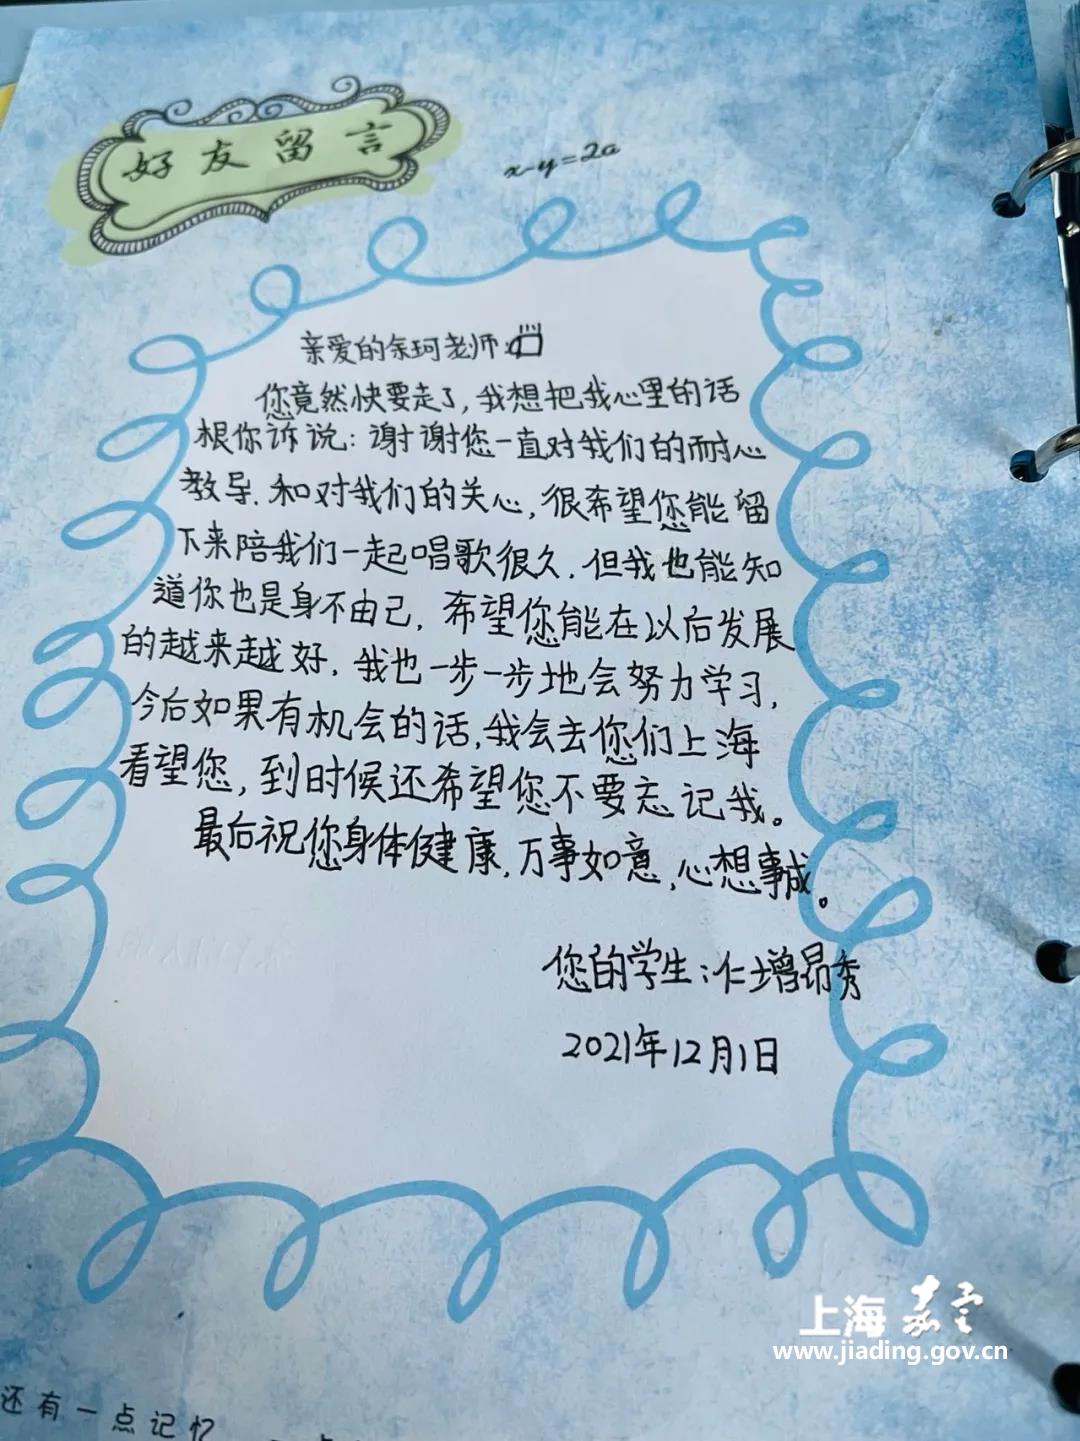 好友留言
x-y=2a
亲爱的余珂老师:
您竟然快要走了,我想把我心里的话
根你诉说:谢谢您一直对我们的耐心
教导.和对我们的关心,很希望您能留
下来陪我们一起唱歌很久.但我也能知
道你也是身不由己,希望您能在以后发展
的越来越好,我也一步一步地会努力学习,
今后如果有机会的话,我会去您们上海
看望您,到时候还希望您不要忘记我。
最后祝您身体健康,万事如意,心想事成。
您的学生:仁增昂秀
2021年12月1日
上海嘉定
www.jiading.gov.cn
还有一点记忆